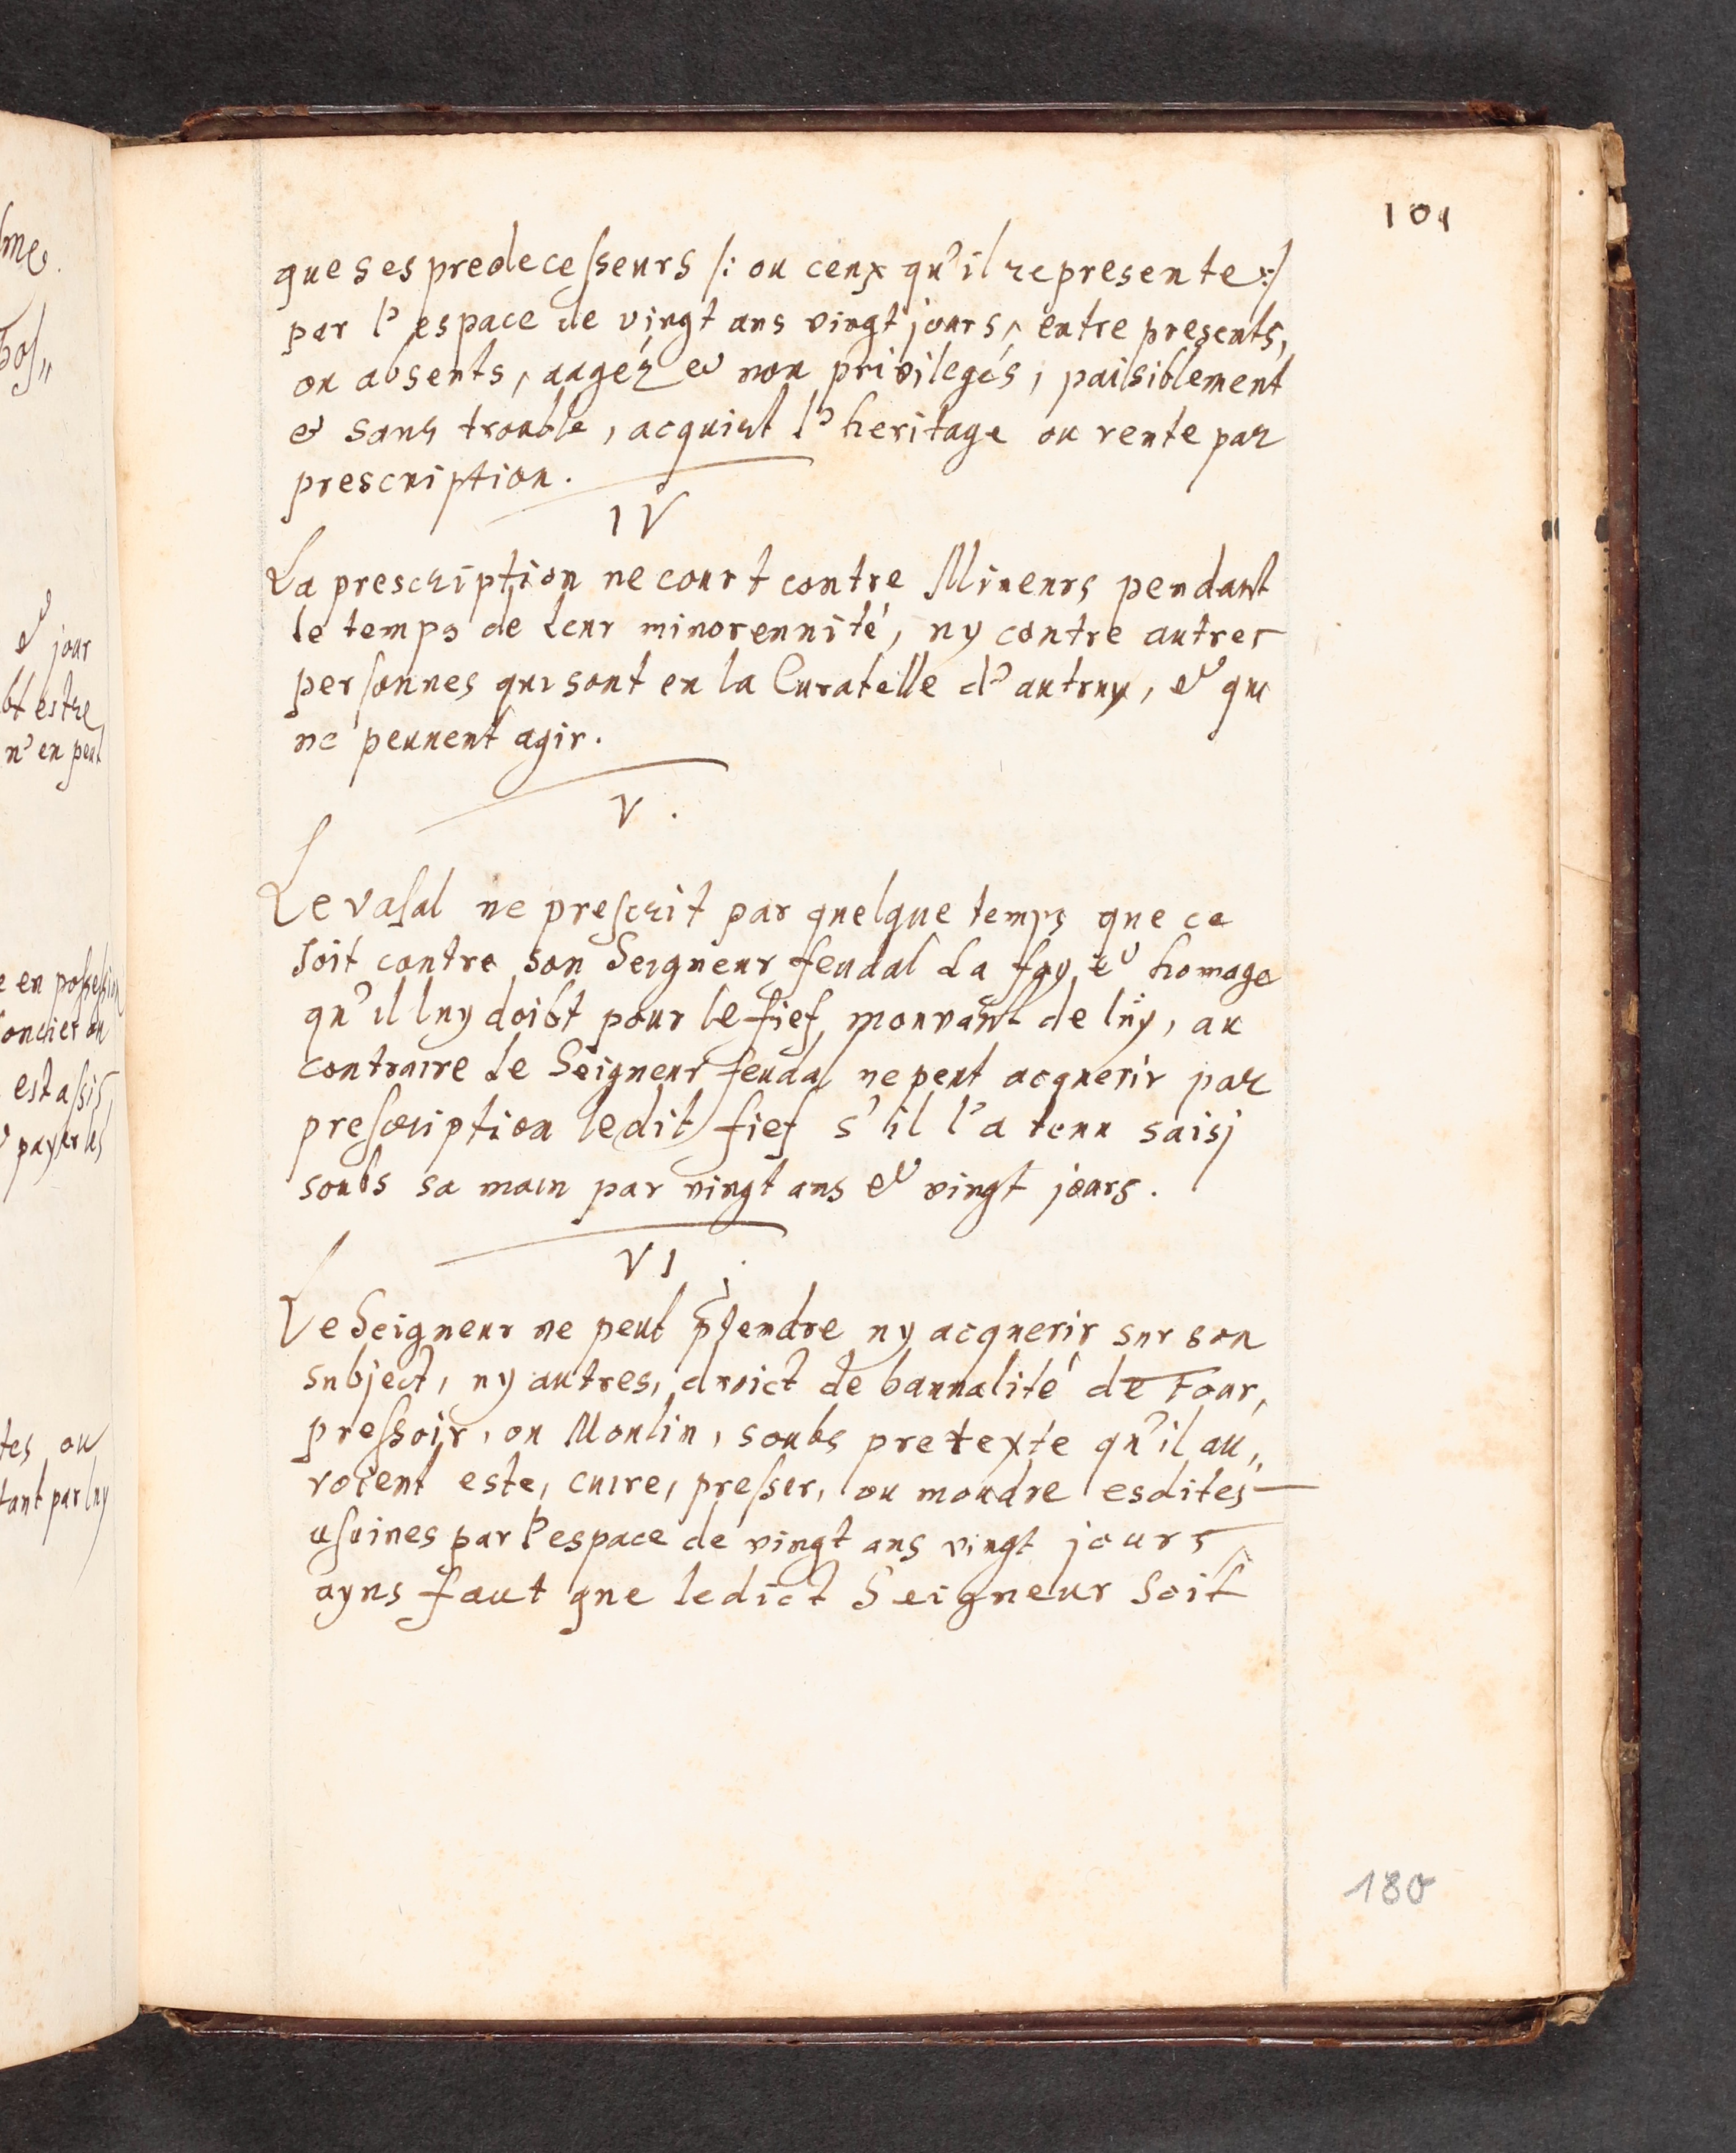 101
que ses predecesseurs /: ou ceux qu'il represente :/
par l'espace de vingt ans vingt jours, entre presents,
ou absents, aagéz et non privilegés, paisiblement
et sans trouble, acquiert l'heritage ou rente par
prescription.
IV
La prescription ne court contre Mineurs pendant
le temps de leur minorennité, ny contre autres
personnes qui sont en la Curatelle d'autruy, et qui
ne peuuent agir.
V.
Le vasal ne prescrit par quelque temps que ce
soit contre son Seigneur feudal la foy et homage
qu'il luy doibt pour le fief mouvant de luy, au
contraire le Seigneur feudal ne peut acquerir par
prescription ledit fief s'il l'a tenu saisj
soubs sa main par vingt ans et vingt jours.
VI.
Le Seigneur ne peut prendre ny acquerir sur son
subject, ny autres, droict de bannalité de Four,
pressoir, ou Moulin, soubs pretexte qu'il au„
roient este, cuire, presser, ou moudre esdites
usuines par l'espace de vingt ans vingt jours
ayns faut que ledict Seigneur soit
180
me.
et jour
bt estre
n'en peut
e en possession
oncier ou
est assis,
payer les
tes ou
tant par luy